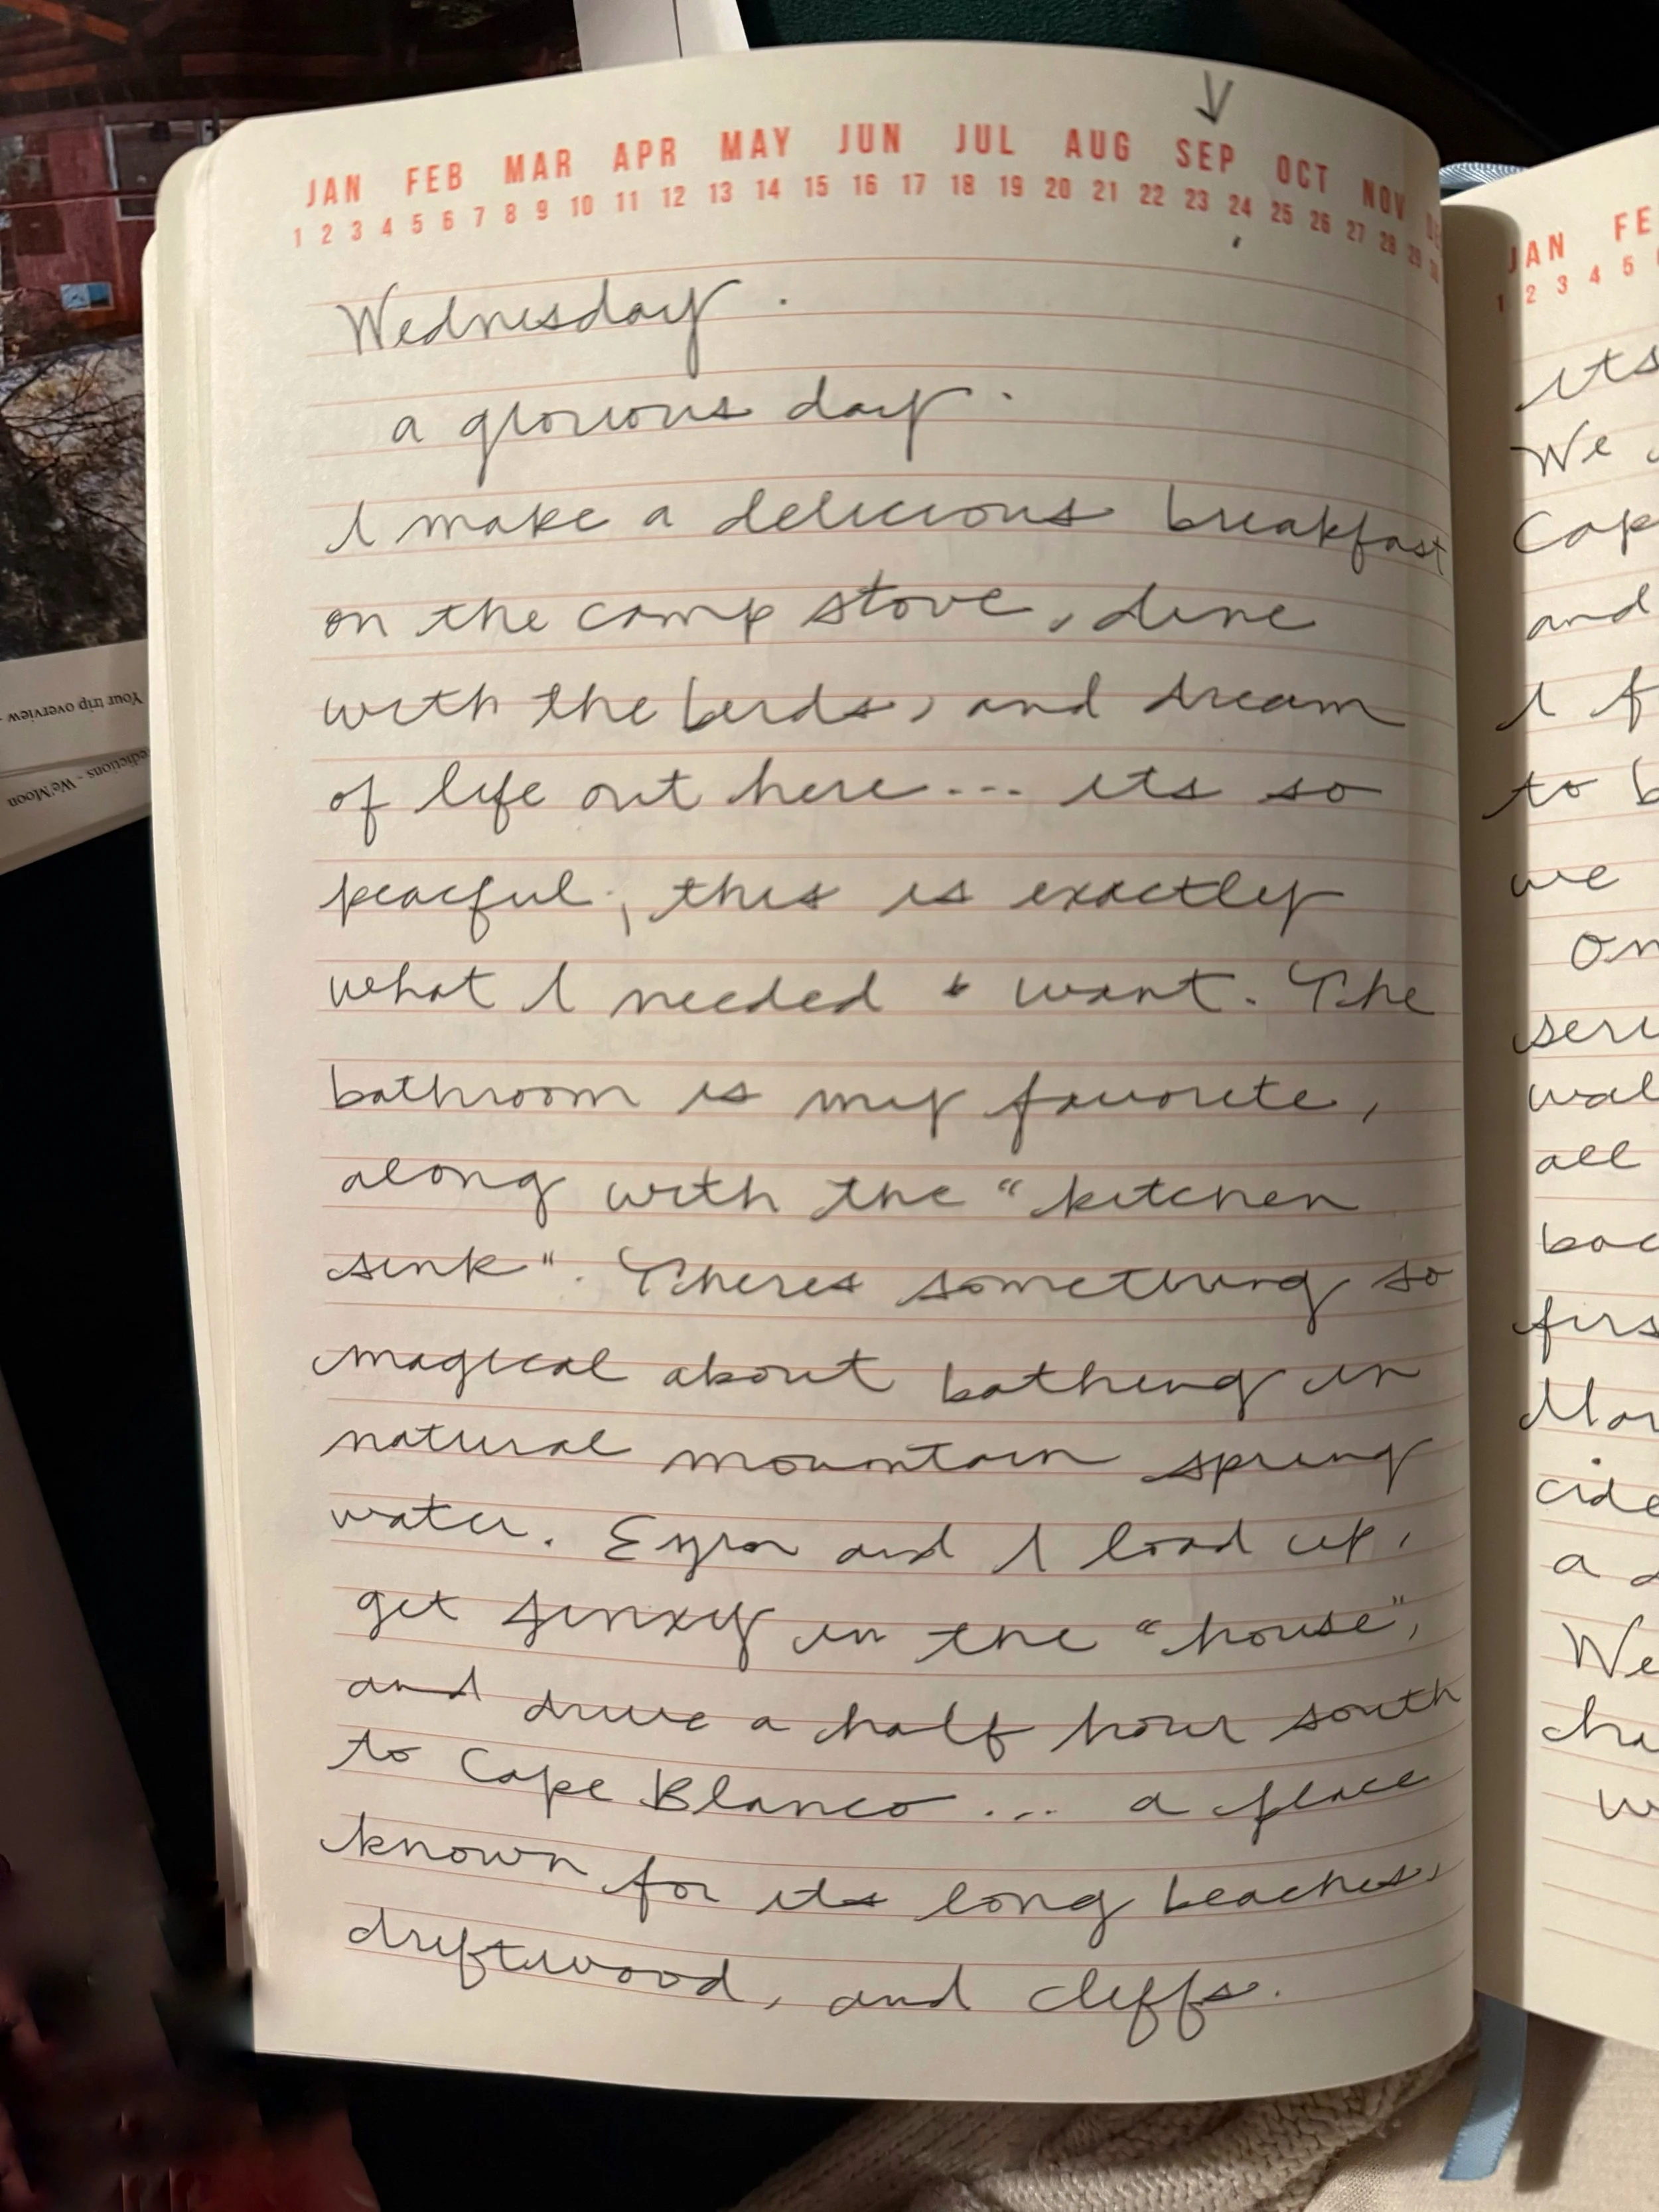 JAN FEB MAR APR MAY JUN JUL AUG SEP OCT NOV
1 2 3 4 5 6 7 8 9 10 11 12 13 14 15 16 17 18 19 20 21 22 23 24 25 26 27 28 29 30
Wednesday.
a glorious day.
I make a delicious breakfast
on the camp stove, dine
with the birds, and dream
of life out here... its so
peaceful; this is exactly
what I needed & want. The
bathroom is my favorite,
along with the "kitchen
sink". Theres something so
magical about bathing in
natural mountain spring
water. and I load up,
get in the "house",
and drive a half hour south
to Cape Blanco... a place
known for its long beaches,
driftwood, and cliffs.
JAN FE
1 2 3 4 5
its
We
Cap
and
I f
to b
we
On
seri
wal
all
bac
firs
Mar
cide
a
We
cha
w
Your trip overview -
edictions - We'Moon